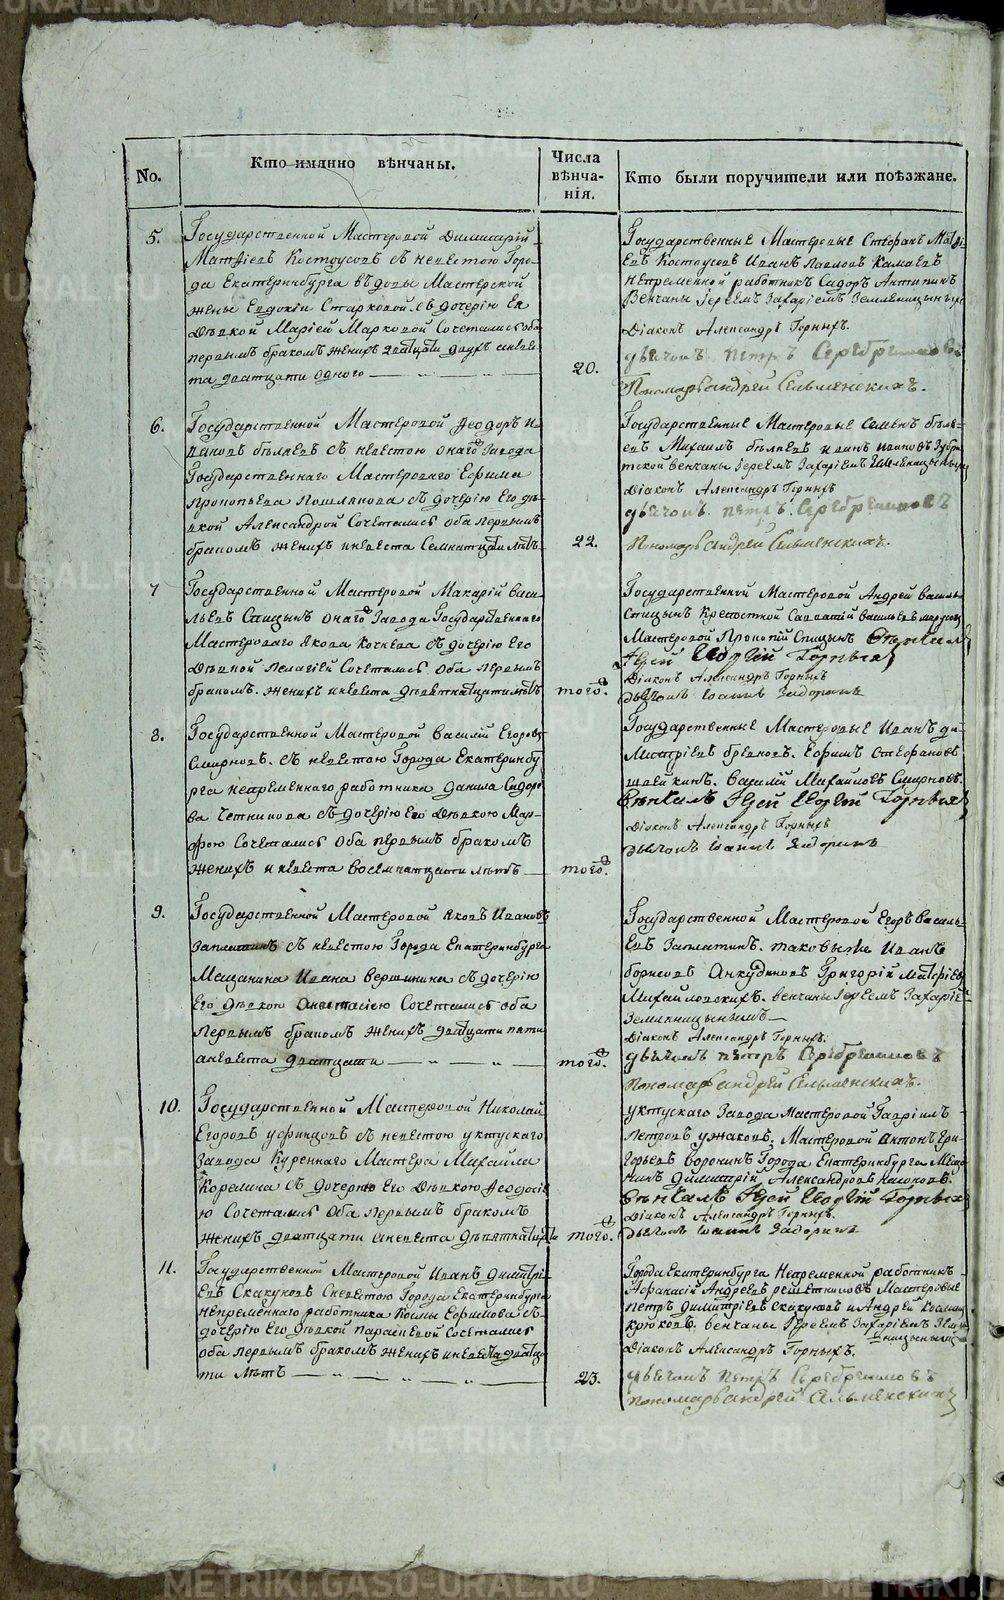 No.
Кто имянно вѣнчаны.
Числа
вѣнча-
нія.
Кто были поручители или поѣзжане.
5.
Государственной Мастеровой Димитрій
Матфіевъ Костоусовъ съ невестою Горо-
да Екатеринбурга вдовы Мастерской
жены Евдокіи Старковой съ дочерію Ея
Девкой Маріей Марковой Сочетались оба
первымъ бракомъ жених дватцати двухъ а невес-
та дватцати одного
20.
Государственные Мастеровые Стефанъ Матфі-
евъ Костоусовъ Иванъ Павловъ Камаевъ
Непременной работникъ Сидоръ Антипинъ
Венчаны Іереемъ Захаріемъ Земляницынымъ
Діаконъ Александръ Горныхъ.
дьячокъ петръ Серебрениковъ
Пономарь андрей Сельменскихъ.
6.
Государственной Мастеровой Феодоръ И-
вановъ беляевъ съ невестою онаго Завода
Государственнаго Мастероваго Ефима
прокопьева съ дочерію Его де-
вкой Александрой Сочетались оба первымъ
бракомъ жених и невеста Семнатцати летъ
22.
Государственные Мастеровые Семенъ беля-
евъ Михаилъ беляевъ иванъ ивановъ
венчаны Іереемъ Захаріемъ Земляницынымъ
Діаконъ Александръ Горныхъ
дьячокъ. петръ. Серебрениковъ
Пономарь андрей Сельменскихъ.
7
Государственной Мастеровой Макарій васи-
льевъ Спицынъ онаго Завода Государственнаго
Мастероваго Якова Кочнева съ дочерію Его
Девкой Пелагіей Сочетались оба первымъ
бракомъ. жених и невеста девятнатцати летъ
того
Государственной Мастеровой Андрей василь-
Спицынъ Крепостной Савватій васильевъ
Мастеровой Прокопій Спицынъ Венчалъ
Іерей Георгій Горныхъ
Діаконъ Александръ Горныхъ
дьячокъ Іоаннъ Задоринъ
8.
Государственной Мастеровой василій Егоровъ
Смирновъ. съ невестою Города Екатеринбу
рга непременнаго работника данила Сидоро
ва Четникова съ дочерію его девкою Мар-
фою Сочетались оба первымъ бракомъ
жених и невеста восемнатцати летъ
того
Государственные Мастеровые Иванъ ди-
митріевъ бревновъ. Ефимъ Стефановъ
швейкинъ. василій Михайловъ Смирновъ.
Венчалъ Іерей Георгій Горныхъ
Діаконъ Александръ Горныхъ
дьячокъ Іоаннъ Задоринъ
9.
Государственной Мастеровой Яковъ Ивановъ
Заплатинъ съ невестою Города Екатеринбурга
Мещанина Ивана вершинина съ дочерію
Его девкою Анастасіею Сочетались оба
первымъ бракомъ жених дватцати пяти
а невеста дватцати
того
Государственной Мастеровой Егоръ василь-
евъ Заплатинъ. таковыеже Иванъ
борисовъ Анкудиновъ Григорій Матфіевъ
Михайловскихъ. венчаны Іереемъ Захаріе-
Земляницынымъ
Діаконъ Александръ Горныхъ.
дьячокъ петръ Серебрениковъ
Пономарь андрей Сельменскихъ.
10.
Государственной Мастеровой Николай
Егоровъ уфинцовъ съ невестою уктускаго
Завода Куреннаго Мастера Михайла
Корелина съ дочерью Его Девкою Феодосіе
ю Сочетались Оба первымъ бракомъ
жених дватцати а невеста девятнатцати
того.
уктускаго Завода Мастеровой Гавріилъ
Петровъ ужаковъ. Мастеровой Антонъ Гри-
горьевъ воронинъ Города Екатеринбурга Меща-
нинъ Димитрій Александровъ
Венчалъ Іерей Георгій Горныхъ
Діаконъ Александръ Горныхъ.
дьячокъ Іоаннъ Задоринъ
11.
Государственной Мастеровой Иванъ Димитрі-
евъ Скакуновъ Сневестою Города Екатеринбурга
непременнаго работника Космы Ефимова съ
дочерію Его девкой параскевой Сочетались
оба первымъ бракомъ жених и невеста дватца
ти летъ
23.
Города Екатеринбурга Непременной работникъ
Афанасій Андреевъ решетниковъ Мастеровые
петръ димитріевъ скакуновъ и Андрей Космин
крюковъ. венчаны Іереемъ Захаріемъ Земля-
ницынымъ
Діаконъ Александръ Горныхъ.
дьячокъ петръ Серебрениковъ
пономарь андрей Сельменскихъ
METRIKI.GASO-URAL.RU